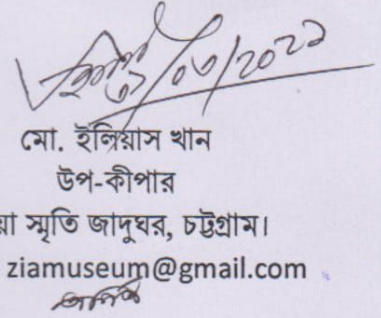 ৩১/০৩/২০২১
মো. ইলিয়াস খান
উপ-কীপার
য়া স্মৃতি জাদুঘর, চট্টগ্রাম।
ziamuseum@gmail.com